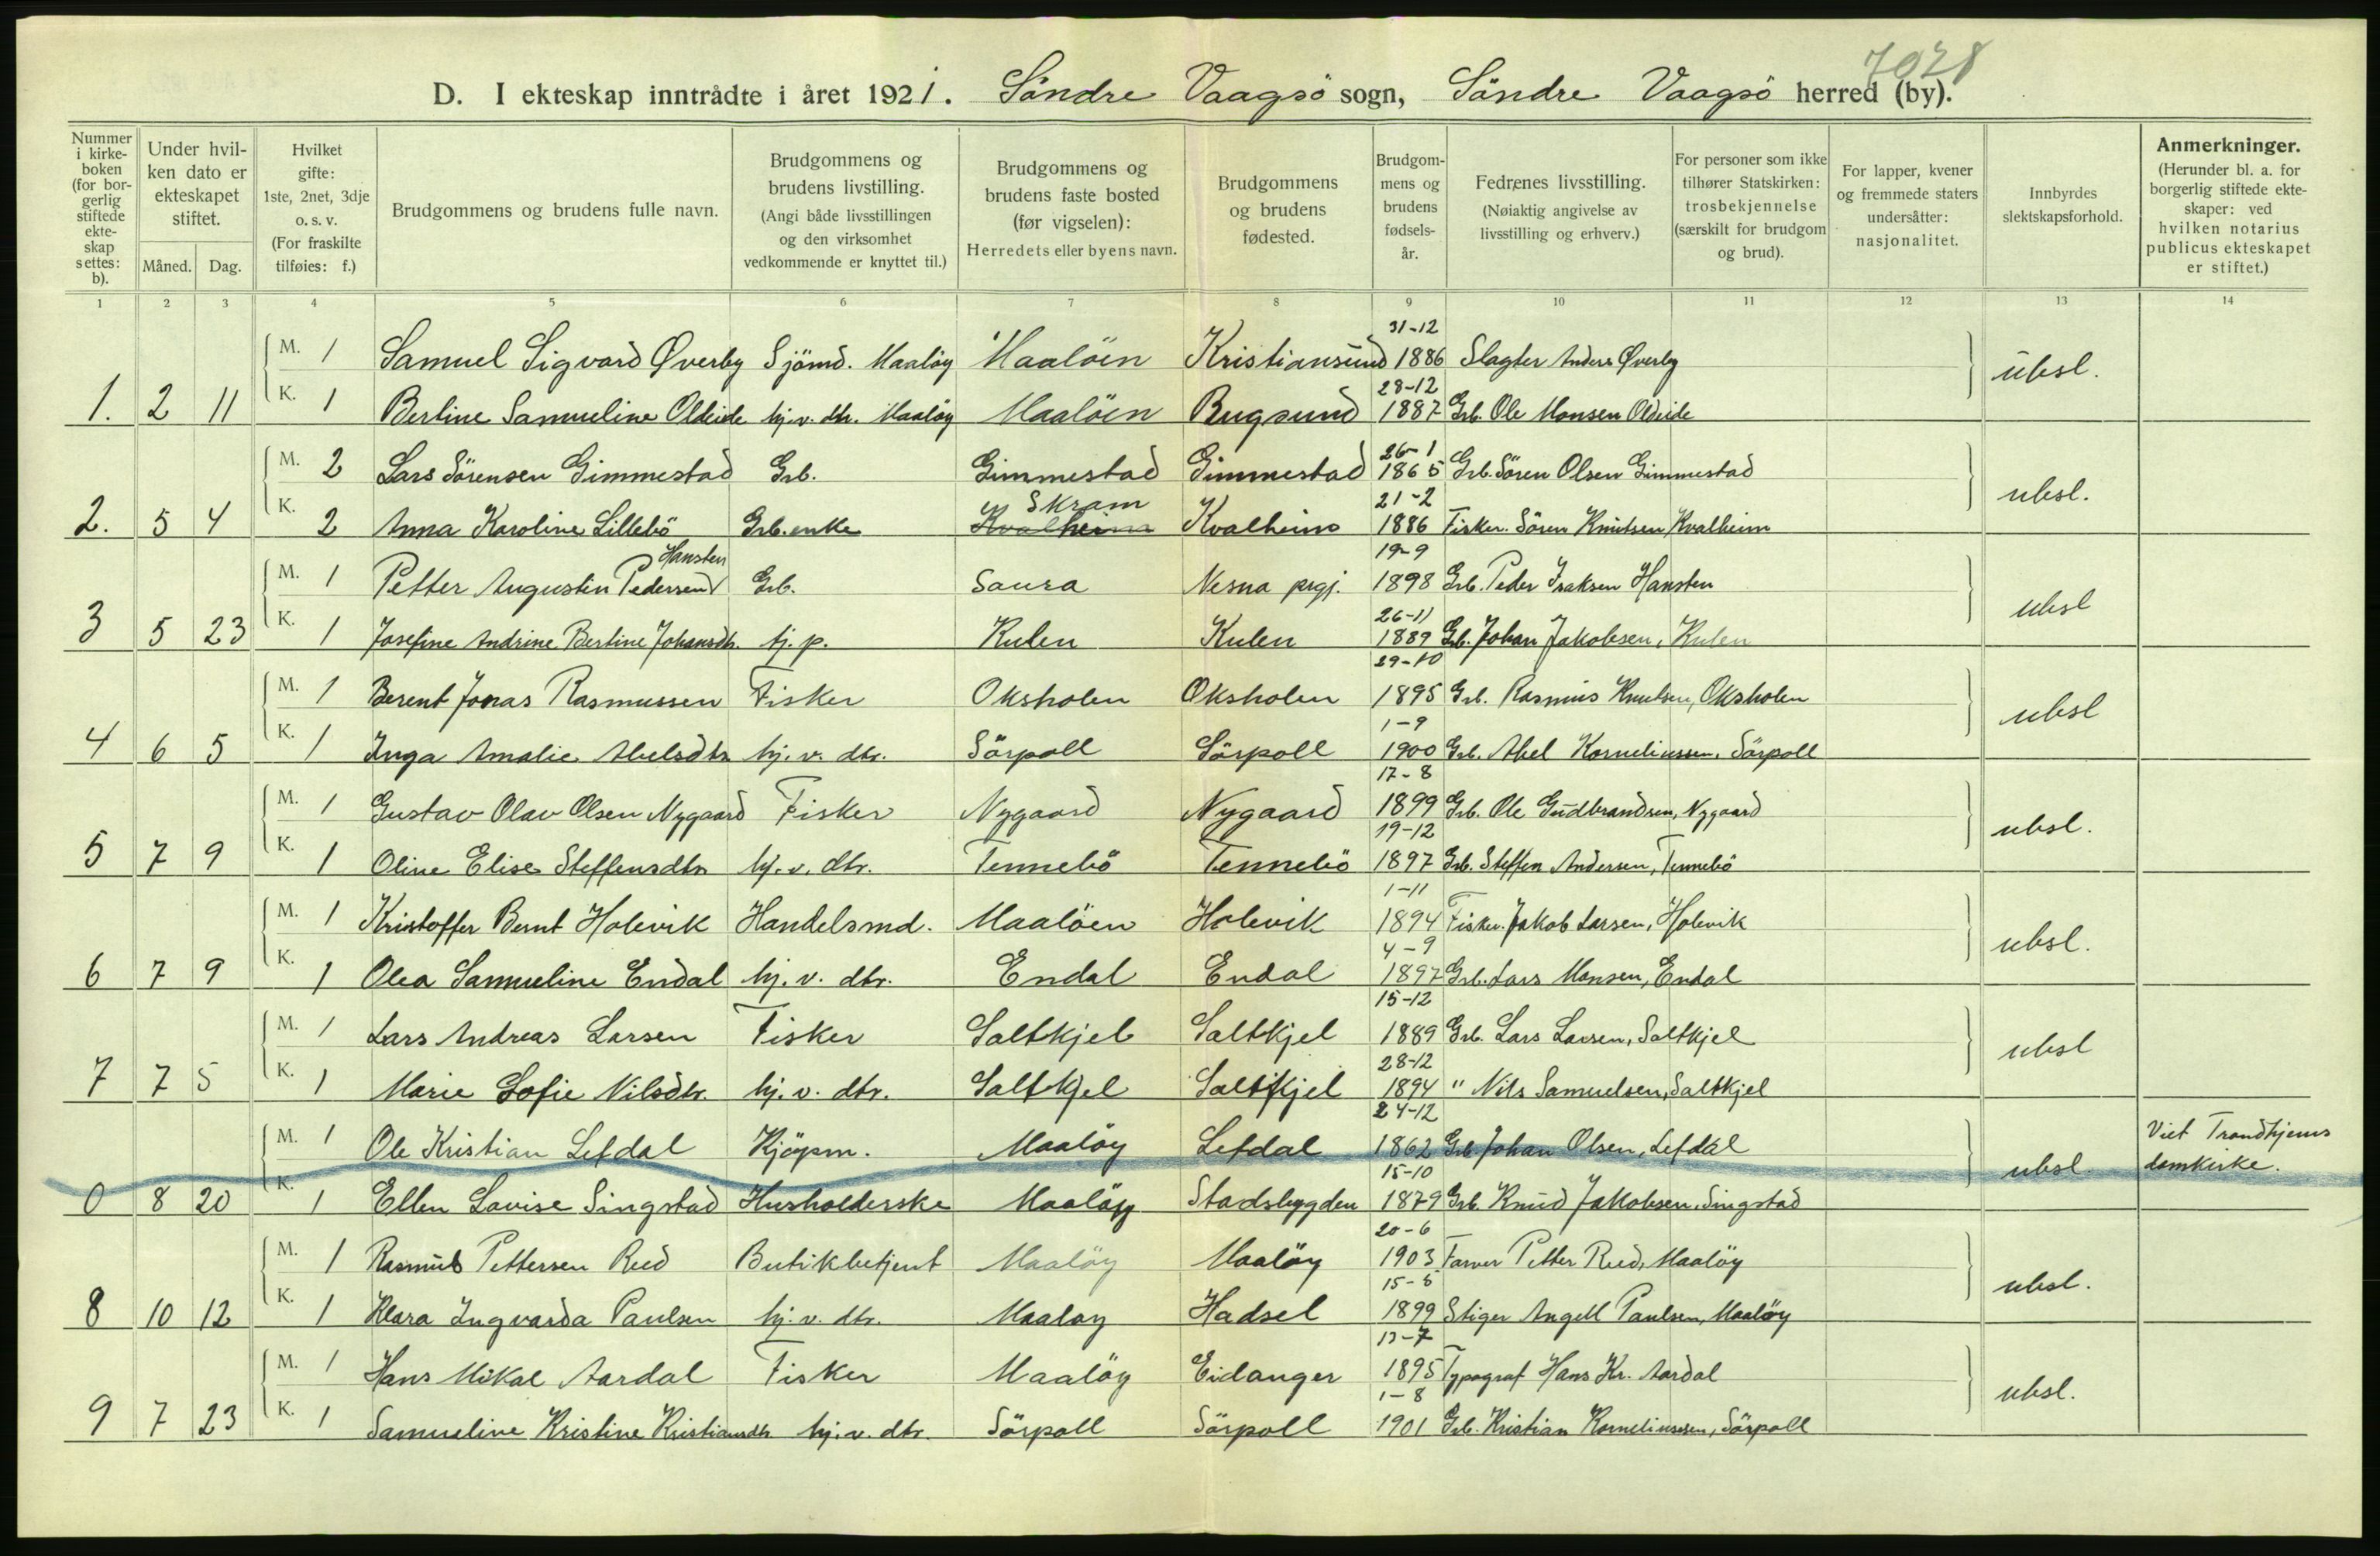 7028
D. I ekteskap inntrådte i året 1921. Söndre Vaagsö sogn, Söndre Vaagsö herred (by).
Nummer i kirkeboken (for borgerlig stiftede ekteskap settes: b).
Under hvilken dato er ekteskapet stiftet.
Måned. Dag.
Hvilket gifte: 1ste, 2net, 3dje o. s. v. (For fraskilte tilføies: f.)
Brudgommens og brudens fulle navn.
Brudgommens og brudens livstilling. (Angi både livsstillingen og den virksomhet vedkommende er knyttet til.)
Brudgommens og brudens faste bosted (før vigselen): Herredets eller byens navn.
Brudgommens og brudens fødested.
Brudgommens og brudens fødselsår.
Fedrenes livsstilling. (Nøiaktig angivelse av livsstilling og erhverv.)
For personer som ikke tilhører Statskirken: trosbekjennelse (særskilt for brudgom og brud).
For lapper, kvener og fremmede staters undersåtter: nasjonalitet.
Innbyrdes slektskapsforhold.
Anmerkninger. (Herunder bl. a. for borgerlig stiftede ekteskaper: ved hvilken notarius publicus ekteskapet er stiftet.)
1 2 3 4 5 6 7 8 9 10 11 12 13 14
31-12
M. 1 Samuel Sigvard Øverby Sjömd. Maalöy Maalöen Kristiansund 1886 Slagter Anders Øverby ubsl.
28-12
1. 2 11 K. 1 Bertine Samueline Oldeide hj.v. dtr. Maalöy Maalöen Rugsund 1887 Grb. Ole Monsen Oldeide
26-1
M. 2 Lars Sörensen Gimmestad Grb. Gimmestad Gimmestad 1865 Grb. Sören Olsen Gimmestad ubsl.
Skram 21-2
2. 5 4 K. 2 Anna Karoline Lillebö Grb. enke Kvalheim Kvalheim 1886 Fisker Sören Knutsen Kvalheim
Hansten 19-9
M. 1 Petter Augustin Pedersen Grb. Saura Nesna prgj. 1898 Grb. Peder Isaksen Hansten ubsl
26-11
3 5 23 K. 1 Josefine Andrine Bertine Johansdtr. tj. p. Kulen Kulen 1889 Grb. Johan Jakobsen, Kulen
29-10
M. 1 Berent Jonas Rasmussen Fisker Oksholen Oksholen 1895 Grb. Rasmus Knutsen, Oksholen ubsl
1-9
4 6 5 K. 1 Inga Amalie Abelsdtr hj. v. dtr. Sörpoll Sörpoll 1900 Grb. Abel Korneliussen, Sörpoll
17-8
M. 1 Gustav Olav Olsen Nygaard Fisker Nygaard Nygaard 1899 Grb. Ole Gudbrandsen, Nygaard ubsl.
19-12
5 7 9 K. 1 Oline Elise Steffensdtr hj. v. dtr. Tennebö Tennebö 1897 Grb. Steffen Andersen, Tennebö
1-11
M. 1 Kristoffer Bernt Holevik Handelsmd. Maalöen Holevik 1894 Fisker Jakob Larsen, Holevik ubsl.
4-9
6 7 9 K. 1 Olea Samueline Endal hj. v. dtr. Endal Endal 1897 Grb. Lars Monsen, Endal
15-12
M. 1 Lars Andreas Larsen Fisker Saltkjel Saltkjel 1889 Grb. Lars Larsen, Saltkjel ubsl
28-12
7 7 5 K. 1 Marie Sofie Nilsdtr. hj. v. dtr. Saltkjel Saltkjel 1894 " Nils Samuelsen, Saltkjel
24-12
M. 1 Ole Kristian Lefdal Kjöpm. Maalöy Lefdal 1862 Grb. Johan Olsen, Lefdal ubsl. Viet Trondhjems domkirke.
15-10
0 8 20 K. 1 Ellen Lovise Singstad Husholderske Maalöy Stadsbygden 1879 Grb. Knud Jakobsen, Singstad
20-6
M. 1 Rasmus Pettersen Rud Butikbetjent Maalöy Maalöy 1903 Farver Petter Rud, Maalöy ubsl.
15-6
8 10 12 K. 1 Klara Ingvarda Paulsen hj. v. dtr. Maaloy Hadsel 1899 Stiger Angell Paulsen, Maalöy
13-7
M. 1 Hans Mikal Aardal Fisker Maalöy Eidanger 1895 Typograf Hans Kr. Aardal ubsl.
1-8
9 7 23 K. 1 Samueline Kristine Kristiansdtr hj. v. dtr. Sörpoll Sörpoll 1901 Grb. Kristian Korneliussen, Sörpoll